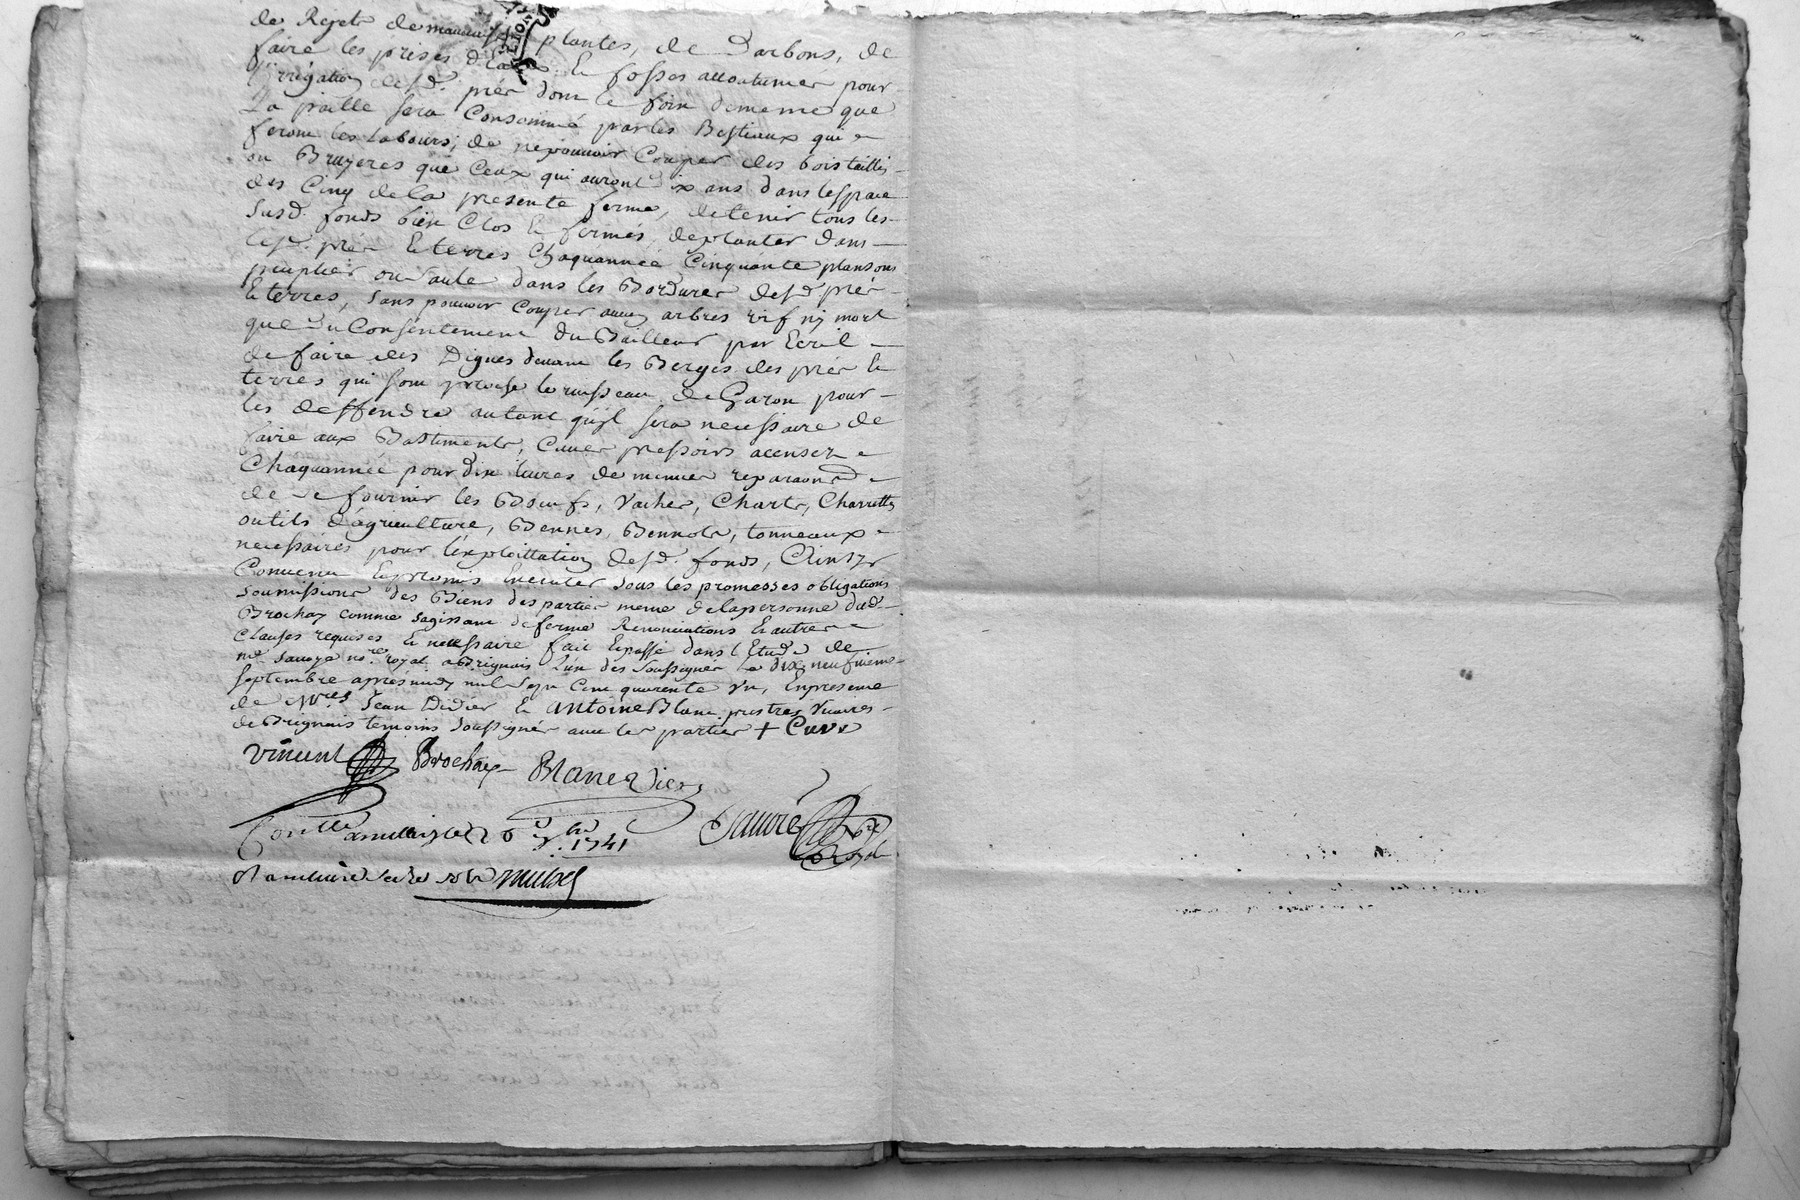 de Rejets de mauvaises plantes, de Darbons, de
faire les prises d'eaux Et fossés accoutumez pour
l'irrigation desd. préz dont le foin dememe que
La paille sera Consommé par les Bestiaux qui
feront les Labours; de ne pouvoir Couper des bois taillis
ou Bruyeres que Ceux qui auront dix ans dans lespace
des Cinq de la presente ferme, de tenir tous les
susd. fonds bien Clos Et fermés, de planter dans
lesd. préz Et terres Chaquannée Cinquante plansons
peuplier ou saule dans les Bordures desd. préz
Et terres, sans pouvoir Couper aucun arbres vif ny mort
que du Consentement du Bailleur par Ecrit
de faire des Digues devant les Berges des préz Et
terres qui sont proche le ruisseau de Garon pour
les deffendre autant qu'il sera necessaire de
faire aux Bastiments, Cuves pressoirs
Chaquannée pour dix livres de menues reparaons
de se fournir les Bœufs, Vaches, Chars, Charrettes
outils d'agriculture, Bennes, Bennots, tonneaux
necessaires pour l'exploittation desd. fonds, Ainsy
Convenu Et promis Executer sous les promesses obligations
soumissions des Biens des parties meme de la personne dud.
Brochay comme sagissant de ferme Renonciations Et autres
Clauses requises Et necessaire fait Et passé dans l'Etude de
me. nore. royal a Brignais l'un des soussignez le dix neufvieme
septembre apres midy mil sept Cent quarente un, En presence
de Mres Jean Didier Et Antoine Blanc prestres Vicaires
de Brignais temoins soussignés avec les parties +
Vincent Brochay Blanc Vic.
1741